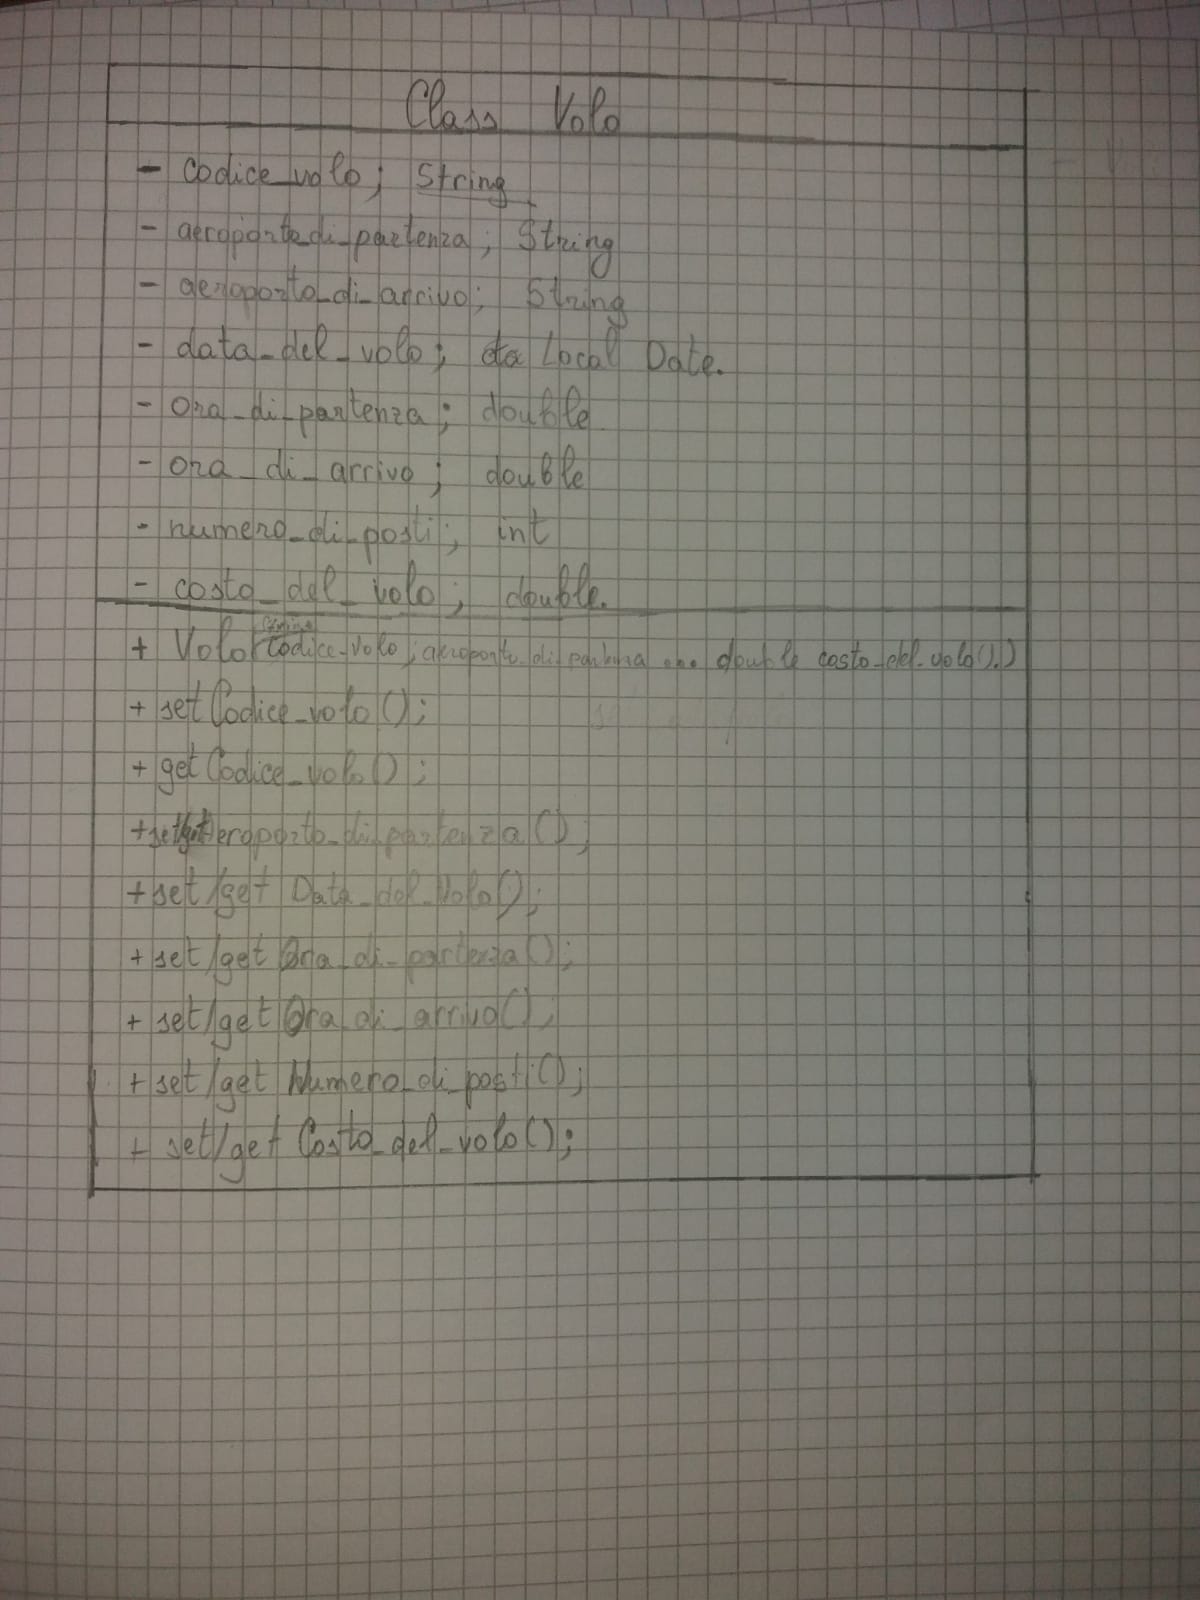 Class Volo
- codice_volo; String
- aeroporto_di_partenza; String
- aeroporto_di_arrivo; String
- data_del_volo; Local Date.
- ora_di_partenza; double
- ora_di_arrivo; double
- numero_di_posti; int
- costo_del_volo; double.
+ Volo(String codice_volo; aeroporto_di_partenza ... double costo_del_volo();)
+ setCodice_volo();
+ getCodice_volo();
+ set/get Aeroporto_di_partenza();
+ set/get Data_del_Volo();
+ set/get Ora_di_partenza();
+ set/get Ora_di_arrivo();
+ set/get Numero_di_posti();
+ set/get Costo_del_volo();